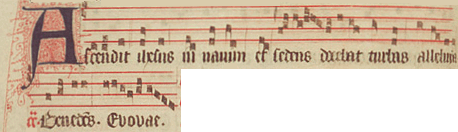 Ascendit ihesus in nauim et sedens docebat turbas alleluia
Benedictus. Evovae.